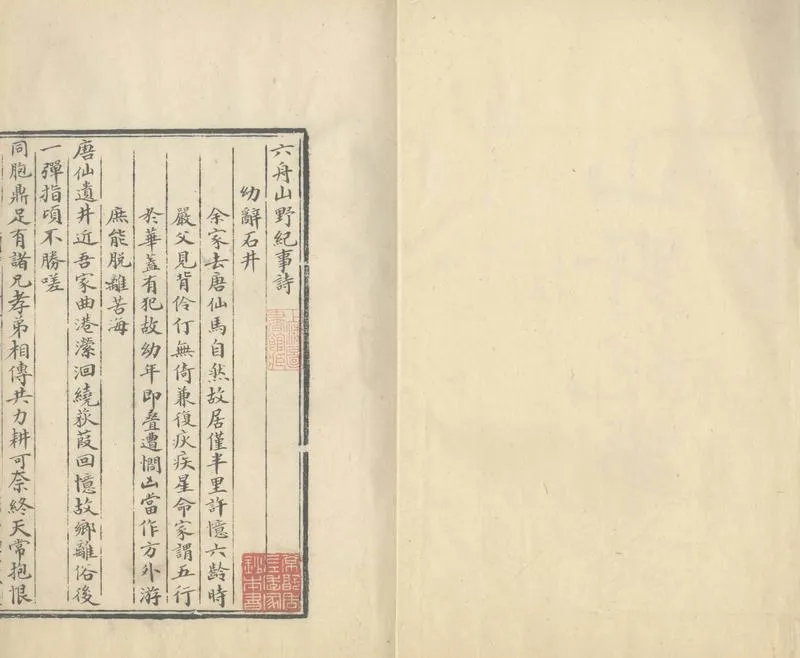 六舟山野紀事詩
幼辭石井
余家去唐仙馬自然故居僅半里許憶六齡時
嚴父見背伶仃無倚兼復疢疾星命家謂五行
於華蓋有犯故幼年即疊遭憫凶當作方外游
庶能脫離苦海
唐仙遺井近吾家曲港瀠洄繞荻葭回憶故鄉離俗後
一彈指頃不勝嗟
同胞鼎足有諸兄孝弟相傳共力耕可奈終天常抱恨